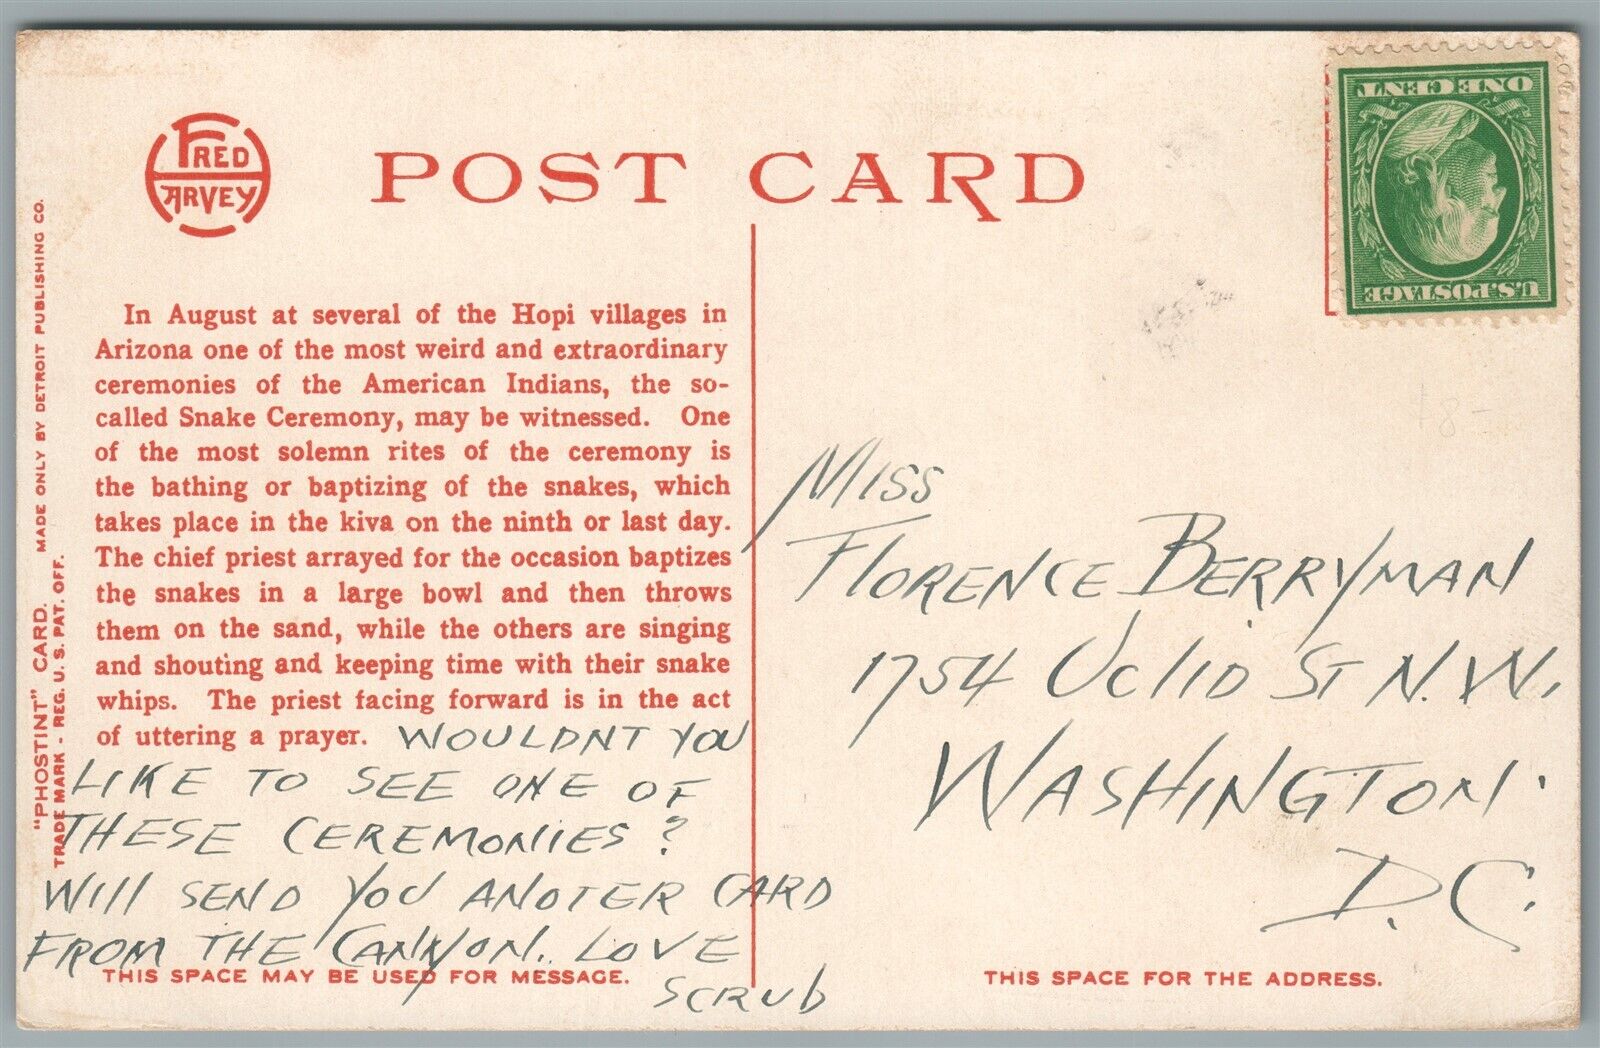 FRED
HARVEY
POST CARD
ONE CENT
U.S. POSTAGE
"PHOSTINT" CARD. MADE ONLY BY DETROIT PUBLISHING CO.
TRADE MARK - REG. U. S. PAT. OFF.
In August at several of the Hopi villages in
Arizona one of the most weird and extraordinary
ceremonies of the American Indians, the so-
called Snake Ceremony, may be witnessed. One
of the most solemn rites of the ceremony is
the bathing or baptizing of the snakes, which
takes place in the kiva on the ninth or last day.
The chief priest arrayed for the occasion baptizes
the snakes in a large bowl and then throws
them on the sand, while the others are singing
and shouting and keeping time with their snake
whips. The priest facing forward is in the act
of uttering a prayer. WOULDNT YOU
LIKE TO SEE ONE OF
THESE CEREMONIES?
WILL SEND YOU ANOTER CARD
FROM THE CANNYON. LOVE
SCRUB
THIS SPACE MAY BE USED FOR MESSAGE.
18-
MISS
FLORENCE BERRYMAN
1754 UCLID ST N.W.
WASHINGTON.
D.C.
THIS SPACE FOR THE ADDRESS.